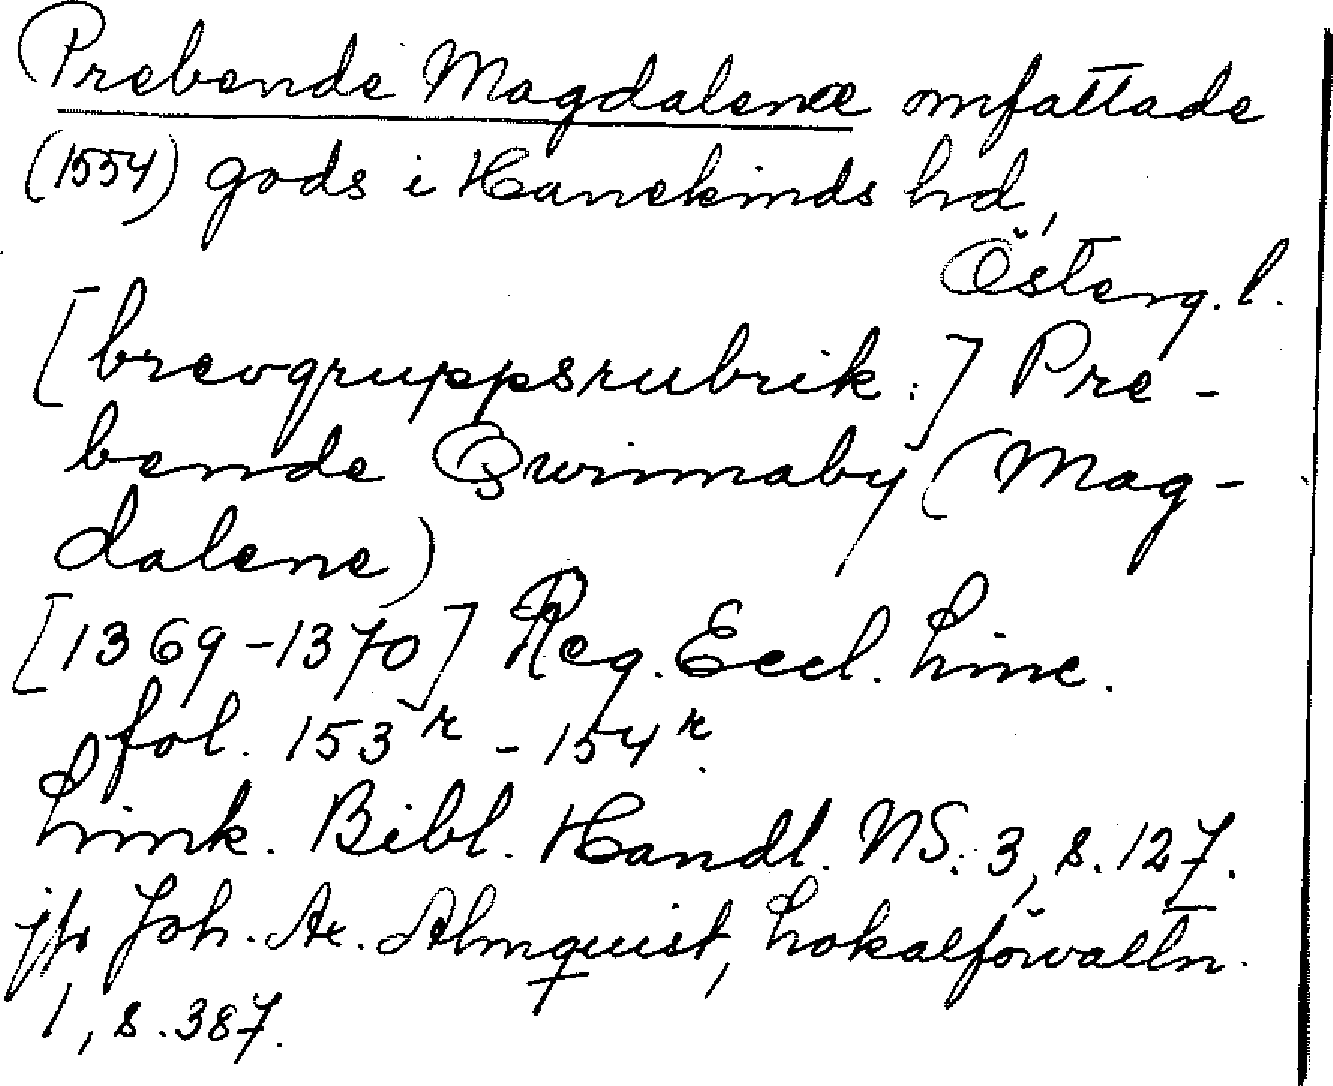 Prebende Magdalenæ omfattade
(1554) gods i Hanekinds hd,
Österg. l.
[brevgruppsrubrik:] Pre-
bende Qwinnaby (Mag-
dalene)
[1369-1370] Reg. Eccl. Linc.
fol. 153r - 154r.
Link. Bibl. Handl. NS: 3, s. 127.
jfr Joh. Ax. Almquist, Lokalförvaltn.
1, s. 387.